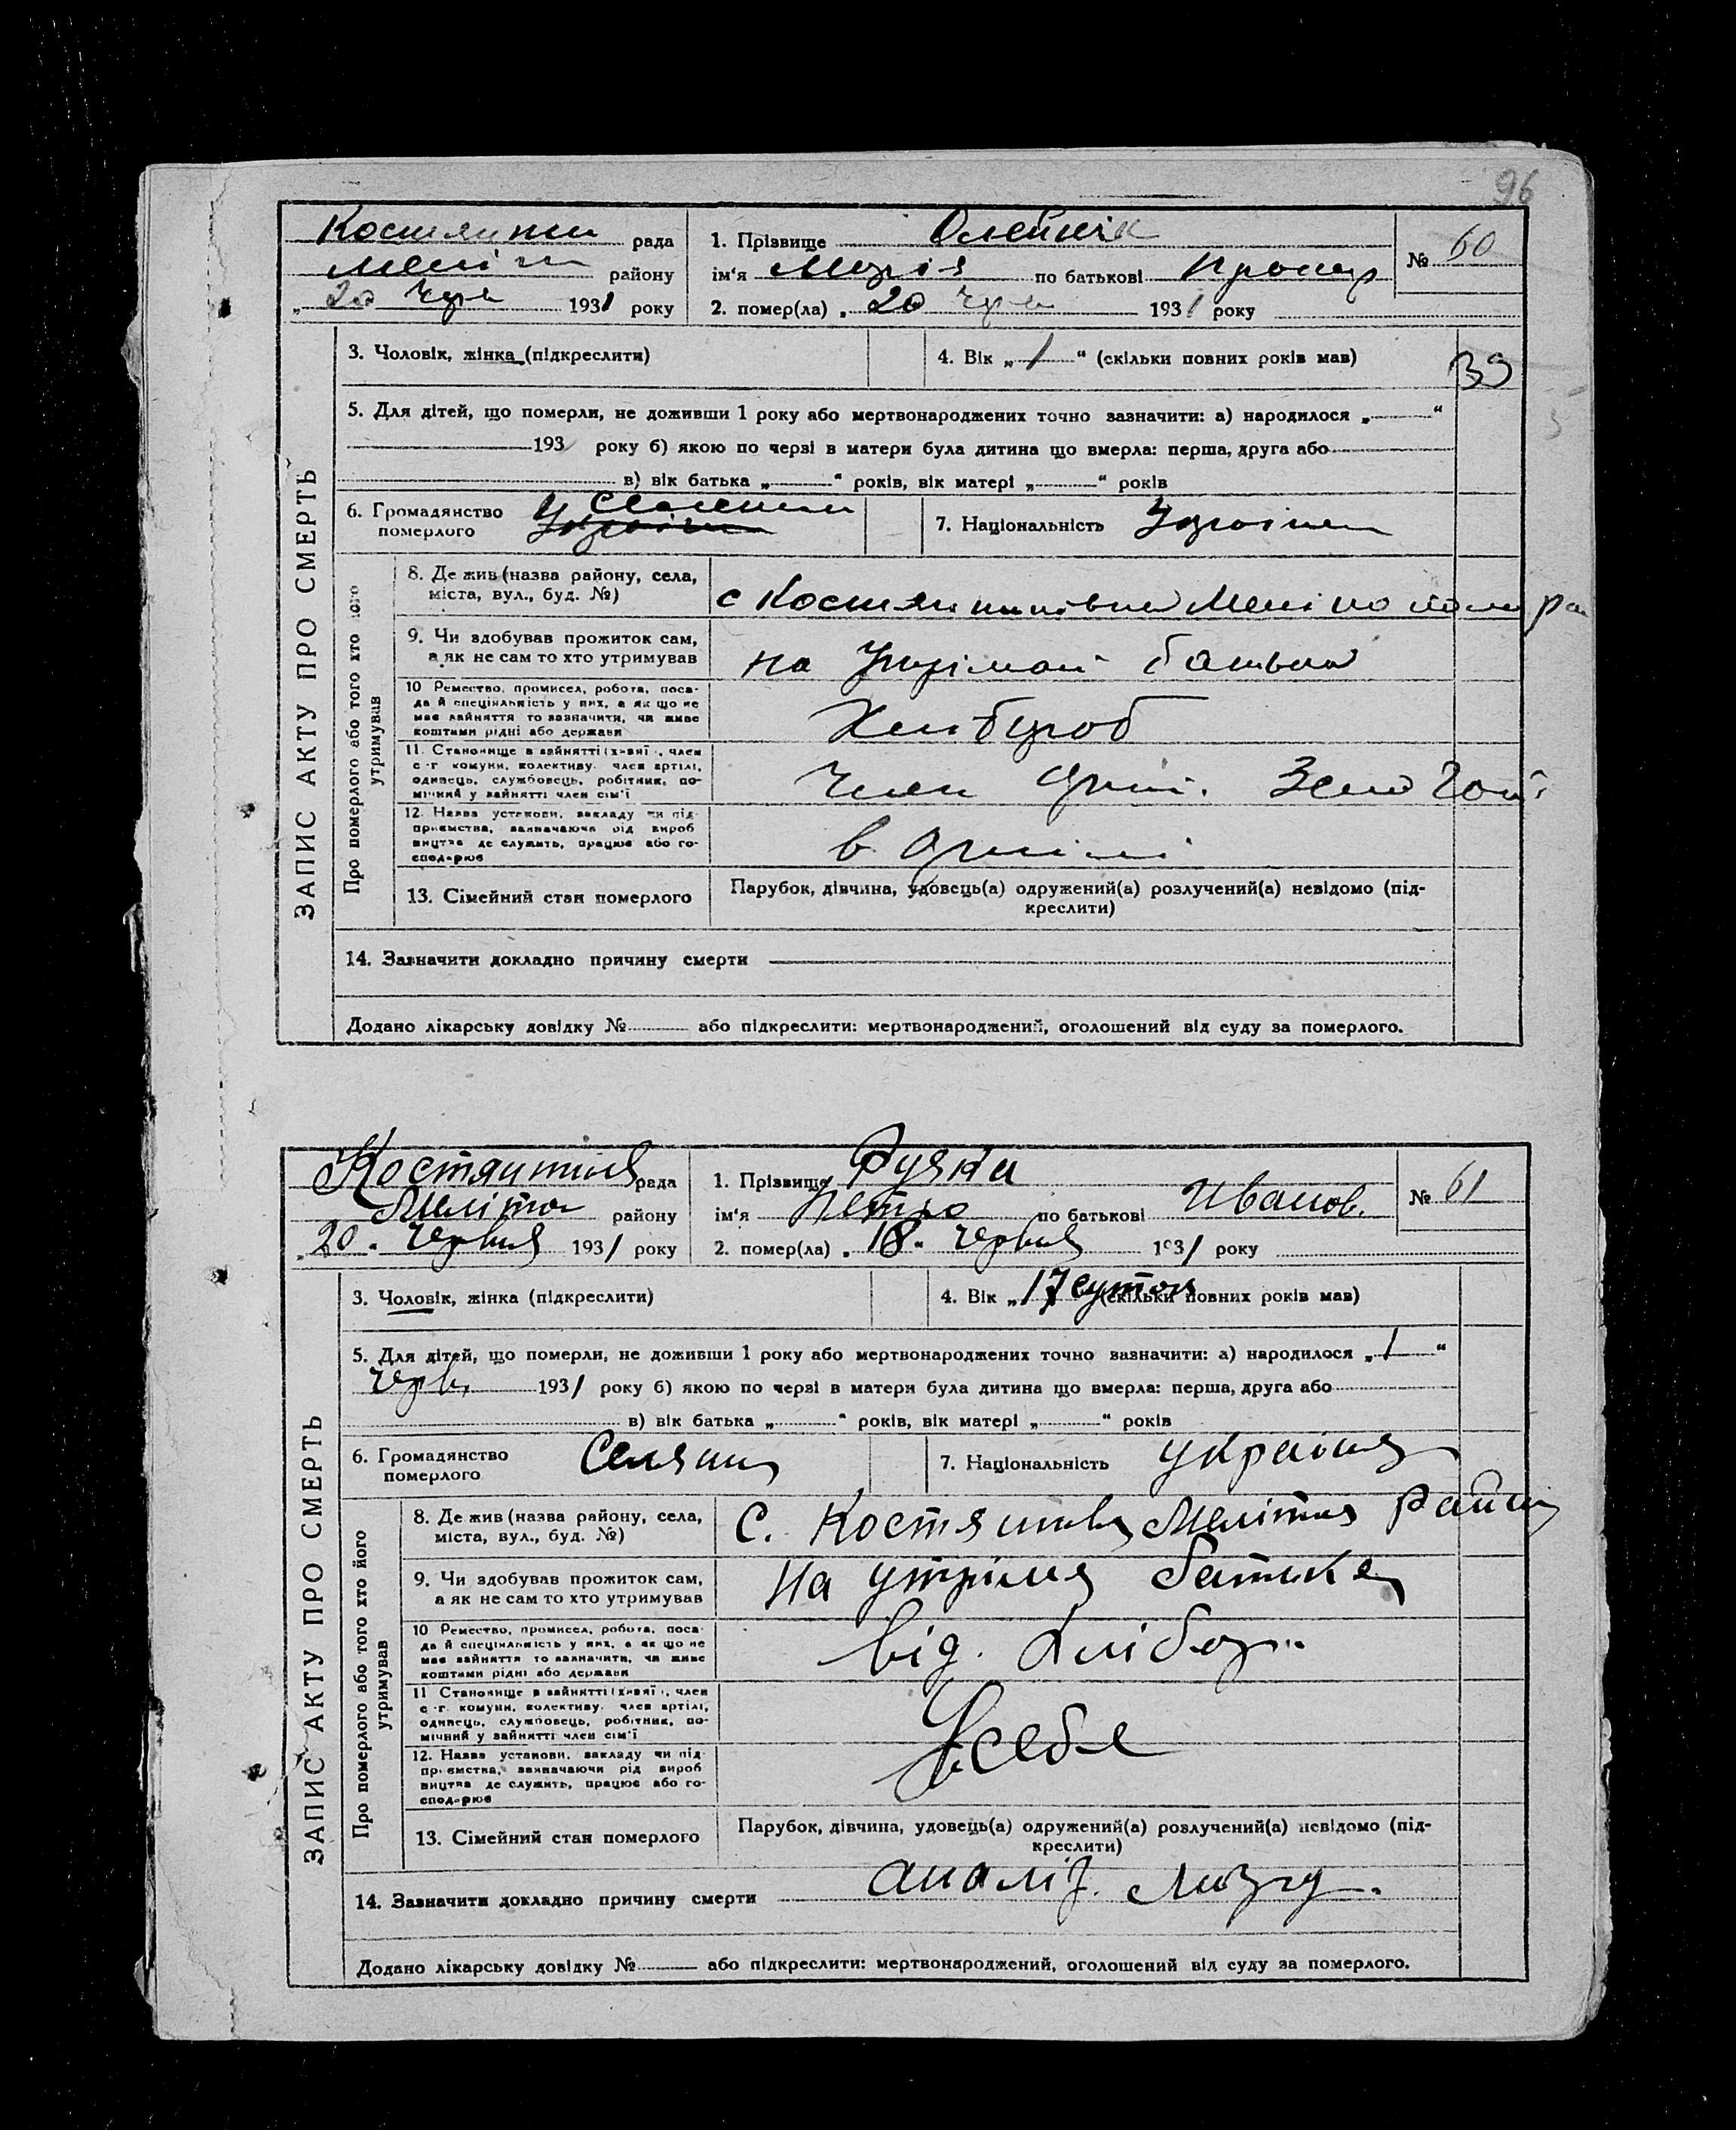 96
Костянтин рада
Меліт району
„ 20 Чер 1931 року
1. Прізвище Олейнік
ім‘я Марія по батькові
2. помер(ла) „ 20 Чер 1931 року
№ 60
ЗАПИС АКТУ ПРО СМЕРТЬ
3. Чоловік, жінка (підкреслити)
4. Вік „ 1 “ (скільки повних років мав)
39
5. Для дітей, що померли, не доживши 1 року або мертвонароджених точно зазначити: а) народилося „ “
193 року б) якою по черзі в матери була дитина що вмерла: перша, друга або
в) вік батька „ “ років, вік матері „ “ років
6. Громадянство
померлого
7. Національність Україн
Про померлого або того хто його
утримував
8. Де жив (назва району, села,
міста, вул., буд. №)
с
9. Чи здобував прожиток сам,
а як не сам то хто утримував
на батька
10 Ремество, промисел, робота, поса-
да й спеціяльність у них, а як що не
має зайняття то зазначити, чи живе
коштами рідні або держави
Хлібороб
11. Становище в зайнятті (хазяї., член
с.-г. комуни, колективу, член артілі,
одинець, службовець, робітник, по-
мічний у зайнятті член сім‘ї
Член Артіл.
12. Назва установи, закладу чи під-
приємства, зазначаючи рід вироб
ництва де служить, працює або го-
сподарює
в Артілі
13. Сімейний стан померлого
Парубок, дівчина, удовець(а) одружений(а) розлучений(а) невідомо (під-
креслити)
14. Зазначити докладно причину смерти
Додано лікарську довідку № або підкреслити: мертвонароджений, оголошений від суду за померлого.
рада
Меліто району
„ 20 “ Червня 1931 року
1. Прізвище
ім‘я Петро по батькові Иванов.
2. помер(ла) „ 18 “ Червня 1931 року
№ 61
ЗАПИС АКТУ ПРО СМЕРТЬ
3. Чоловік, жінка (підкреслити)
4. Вік „ 17 суток (скільки повних років мав)
5. Для дітей, що померли, не доживши 1 року або мертвонароджених точно зазначити: а) народилося „ 1 “
Черв 1931 року б) якою по черзі в матери була дитина що вмерла: перша, друга або
в) вік батька „ “ років, вік матері „ “ років
6. Громадянство
померлого
Селянин
7. Національність
Про померлого або того хто його
утримував
8. Де жив (назва району, села,
міста, вул., буд. №)
С.
9. Чи здобував прожиток сам,
а як не сам то хто утримував
на батька
10 Ремество, промисел, робота, поса-
да й спеціяльність у них, а як що не
має зайняття то зазначити, чи живе
коштами рідні або держави
від. Хлібор
11 Становище в зайнятті (хазяї., член
с.-г. комуни, колективу, член артілі,
одинець, службовець, робітник, по-
мічний у зайнятті член сім‘ї
12. Назва установи, закладу чи під-
приємства, зазначаючи рід вироб
ництва де служить, працює або го-
сподарює
У себе
13. Сімейний стан померлого
Парубок, дівчина, удовець(а) одружений(а) розлучений(а) невідомо (під-
креслити)
14. Зазначити докладно причину смерти
Додано лікарську довідку № або підкреслити: мертвонароджений, оголошений від суду за померлого.